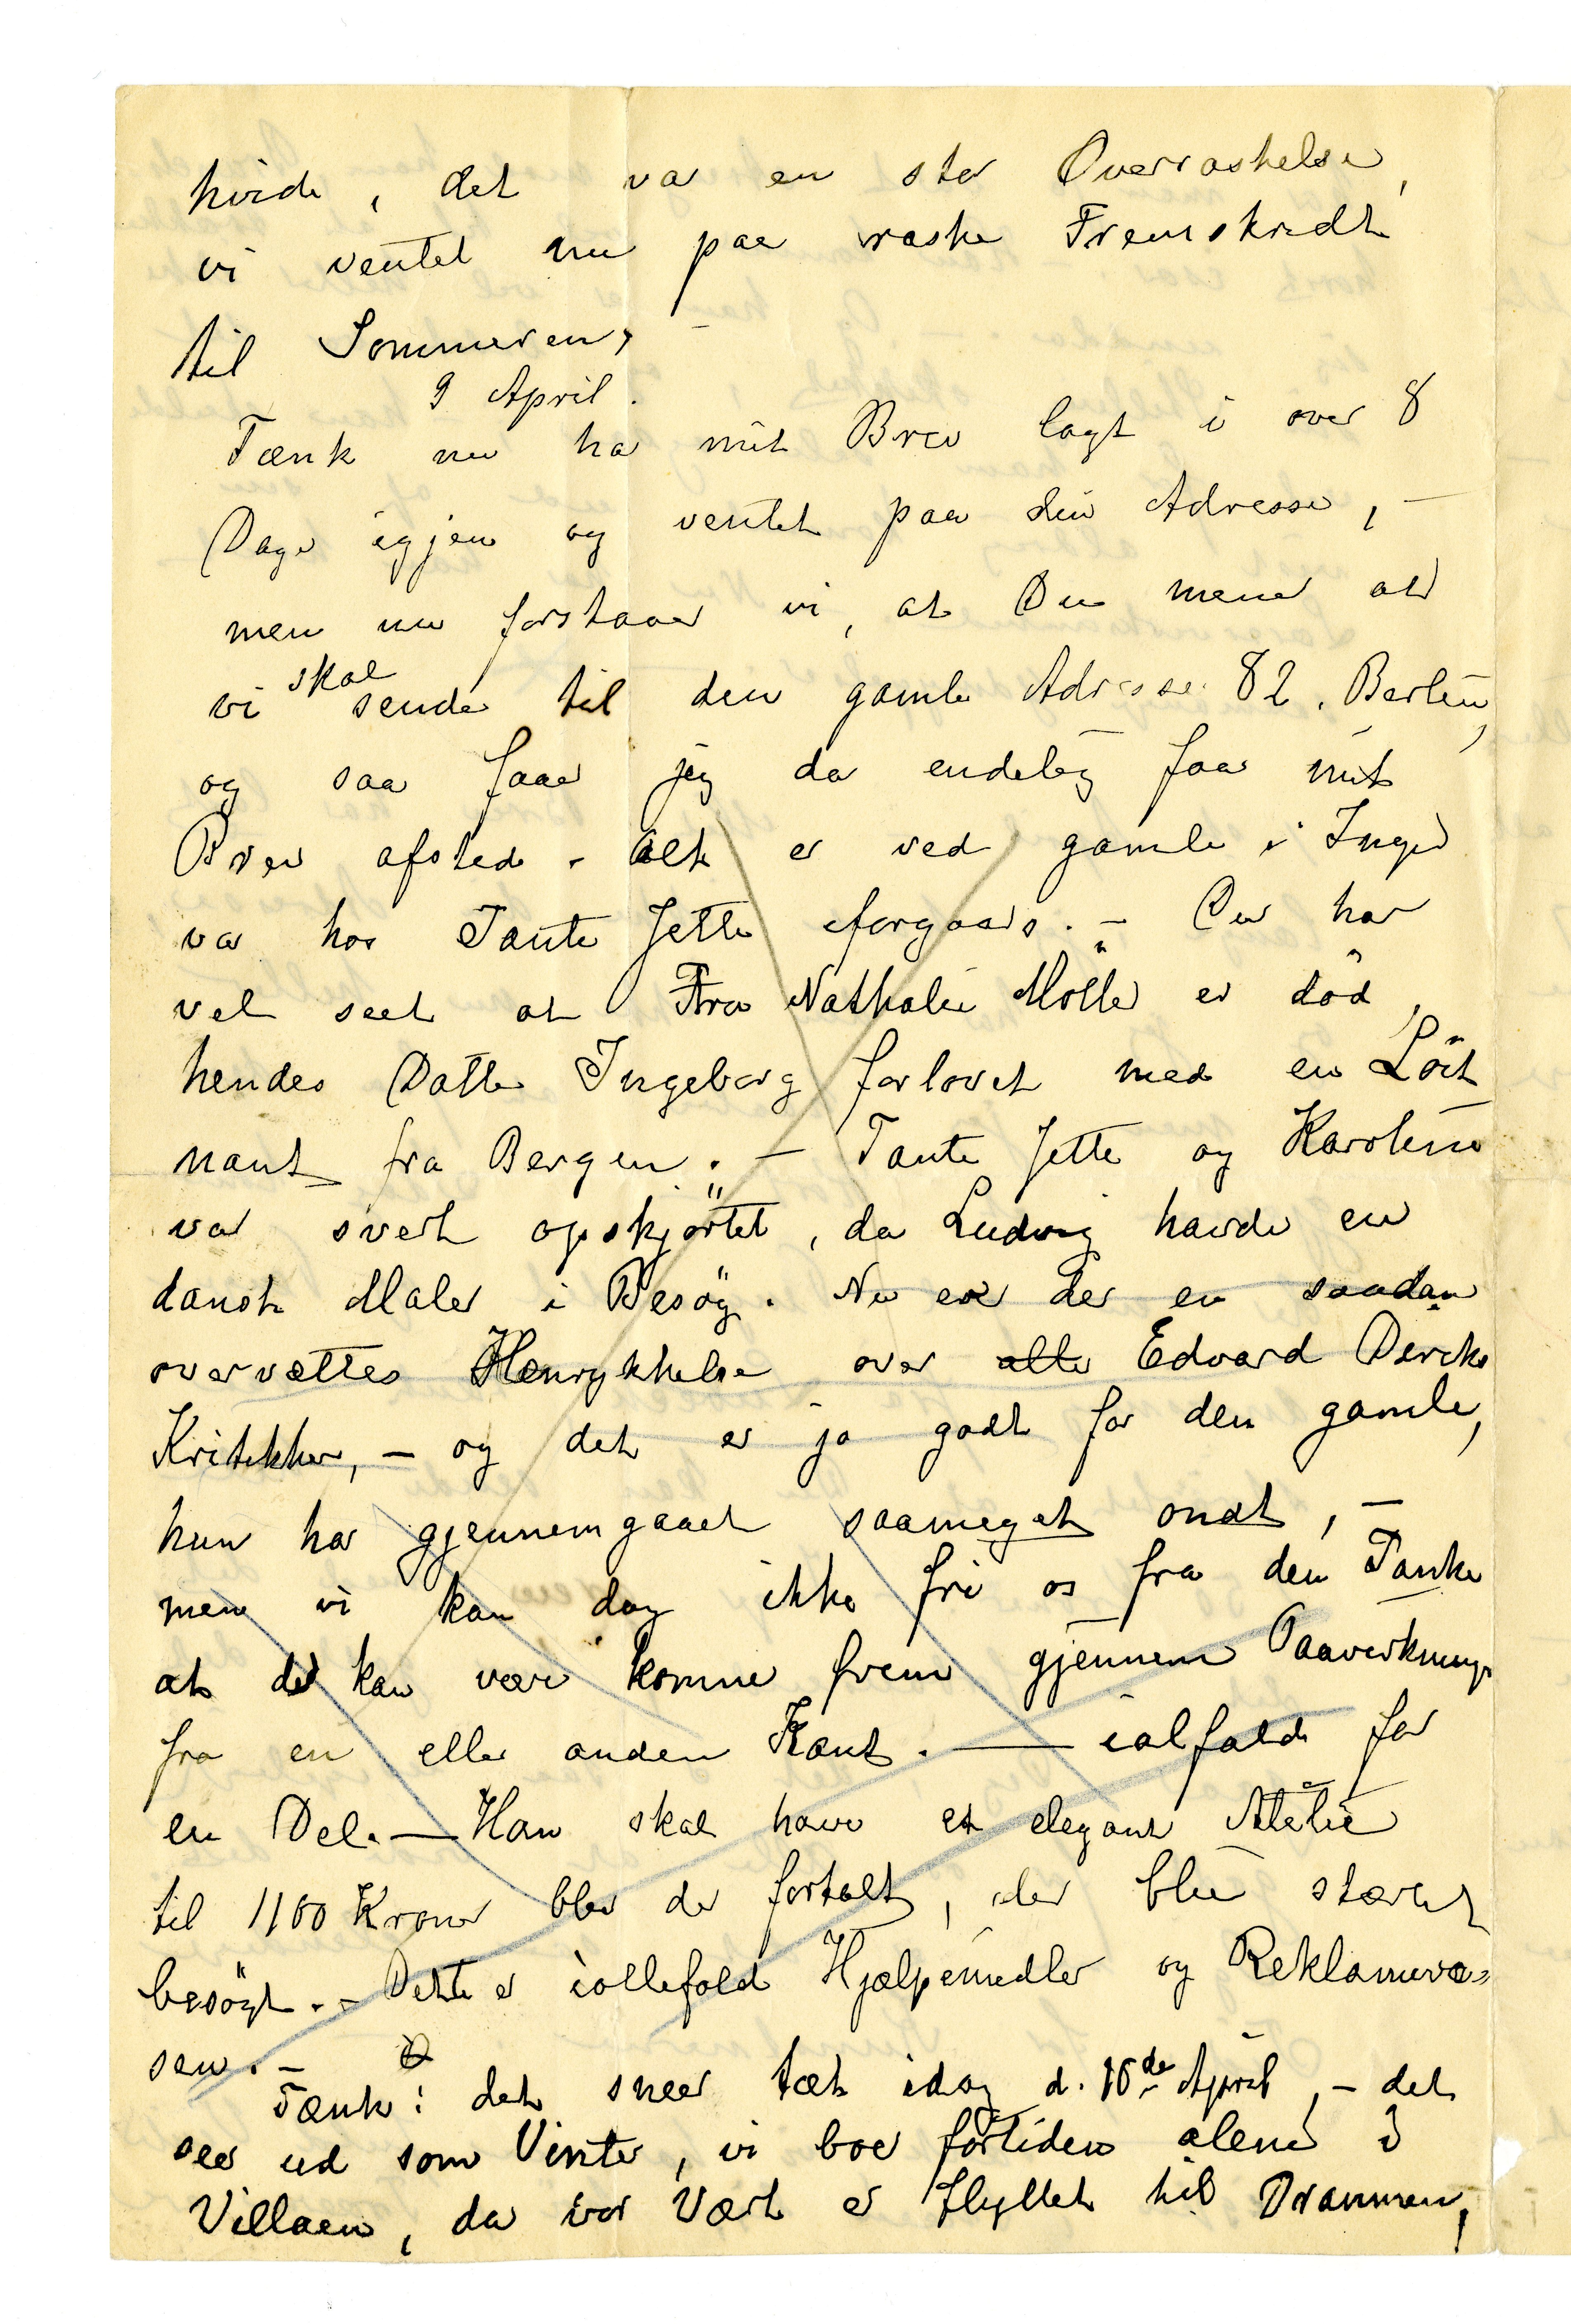 hvide, det var en stor Overraskelse,
vi ventet nu paa raske Fremskridt
til Sommeren, –
9 April.
Tænk nu har mit Brev lagt i over 8
Dage igjen og ventet paa din Adresse, –
men nu forstaaer vi, at Du mener at
vi skal sende til den gamle Adresse 82. Berlin,
og saa faaer jeg da endelig faa mit
Brev afsted. Alt er ved gamle i Inger
var hos Tante Jette forgaars. – Du har
vel seet at Fru Nathalie Möller er död,
hendes Datter Ingeborg forlovet med en Löit
nant fra Bergen. – Tante Jette og Karoline
var svert opskjörtet, da Ludvig havde en
dansk Maler i Besög. Nu er der en saadan
overvættes Henrykkelse over alle Edvard Diricks
Kritikker, – og det er jo godt for den gamle,
hun har gjennemgaaet saameget ondt, –
men vi kan dog ikke fri os fra den Tanke
at det kan være komme frem gjennem Paavirkning
fra en eller anden Kant. — ialfald for
en Del. — Han skal have et elegant Atelie
til 1100 Kroner blev der fortalt, der blir stærkt
besögt. – Dette er iallefald Hjælpemidler og Reklamevæ=
sen. –
Tænk: det sneer tæt idag d. 10de April, – det
seer ud som Vinter, vi boer fortiden alene i
Villaen, da vor Vært er flyttet til Drammen,